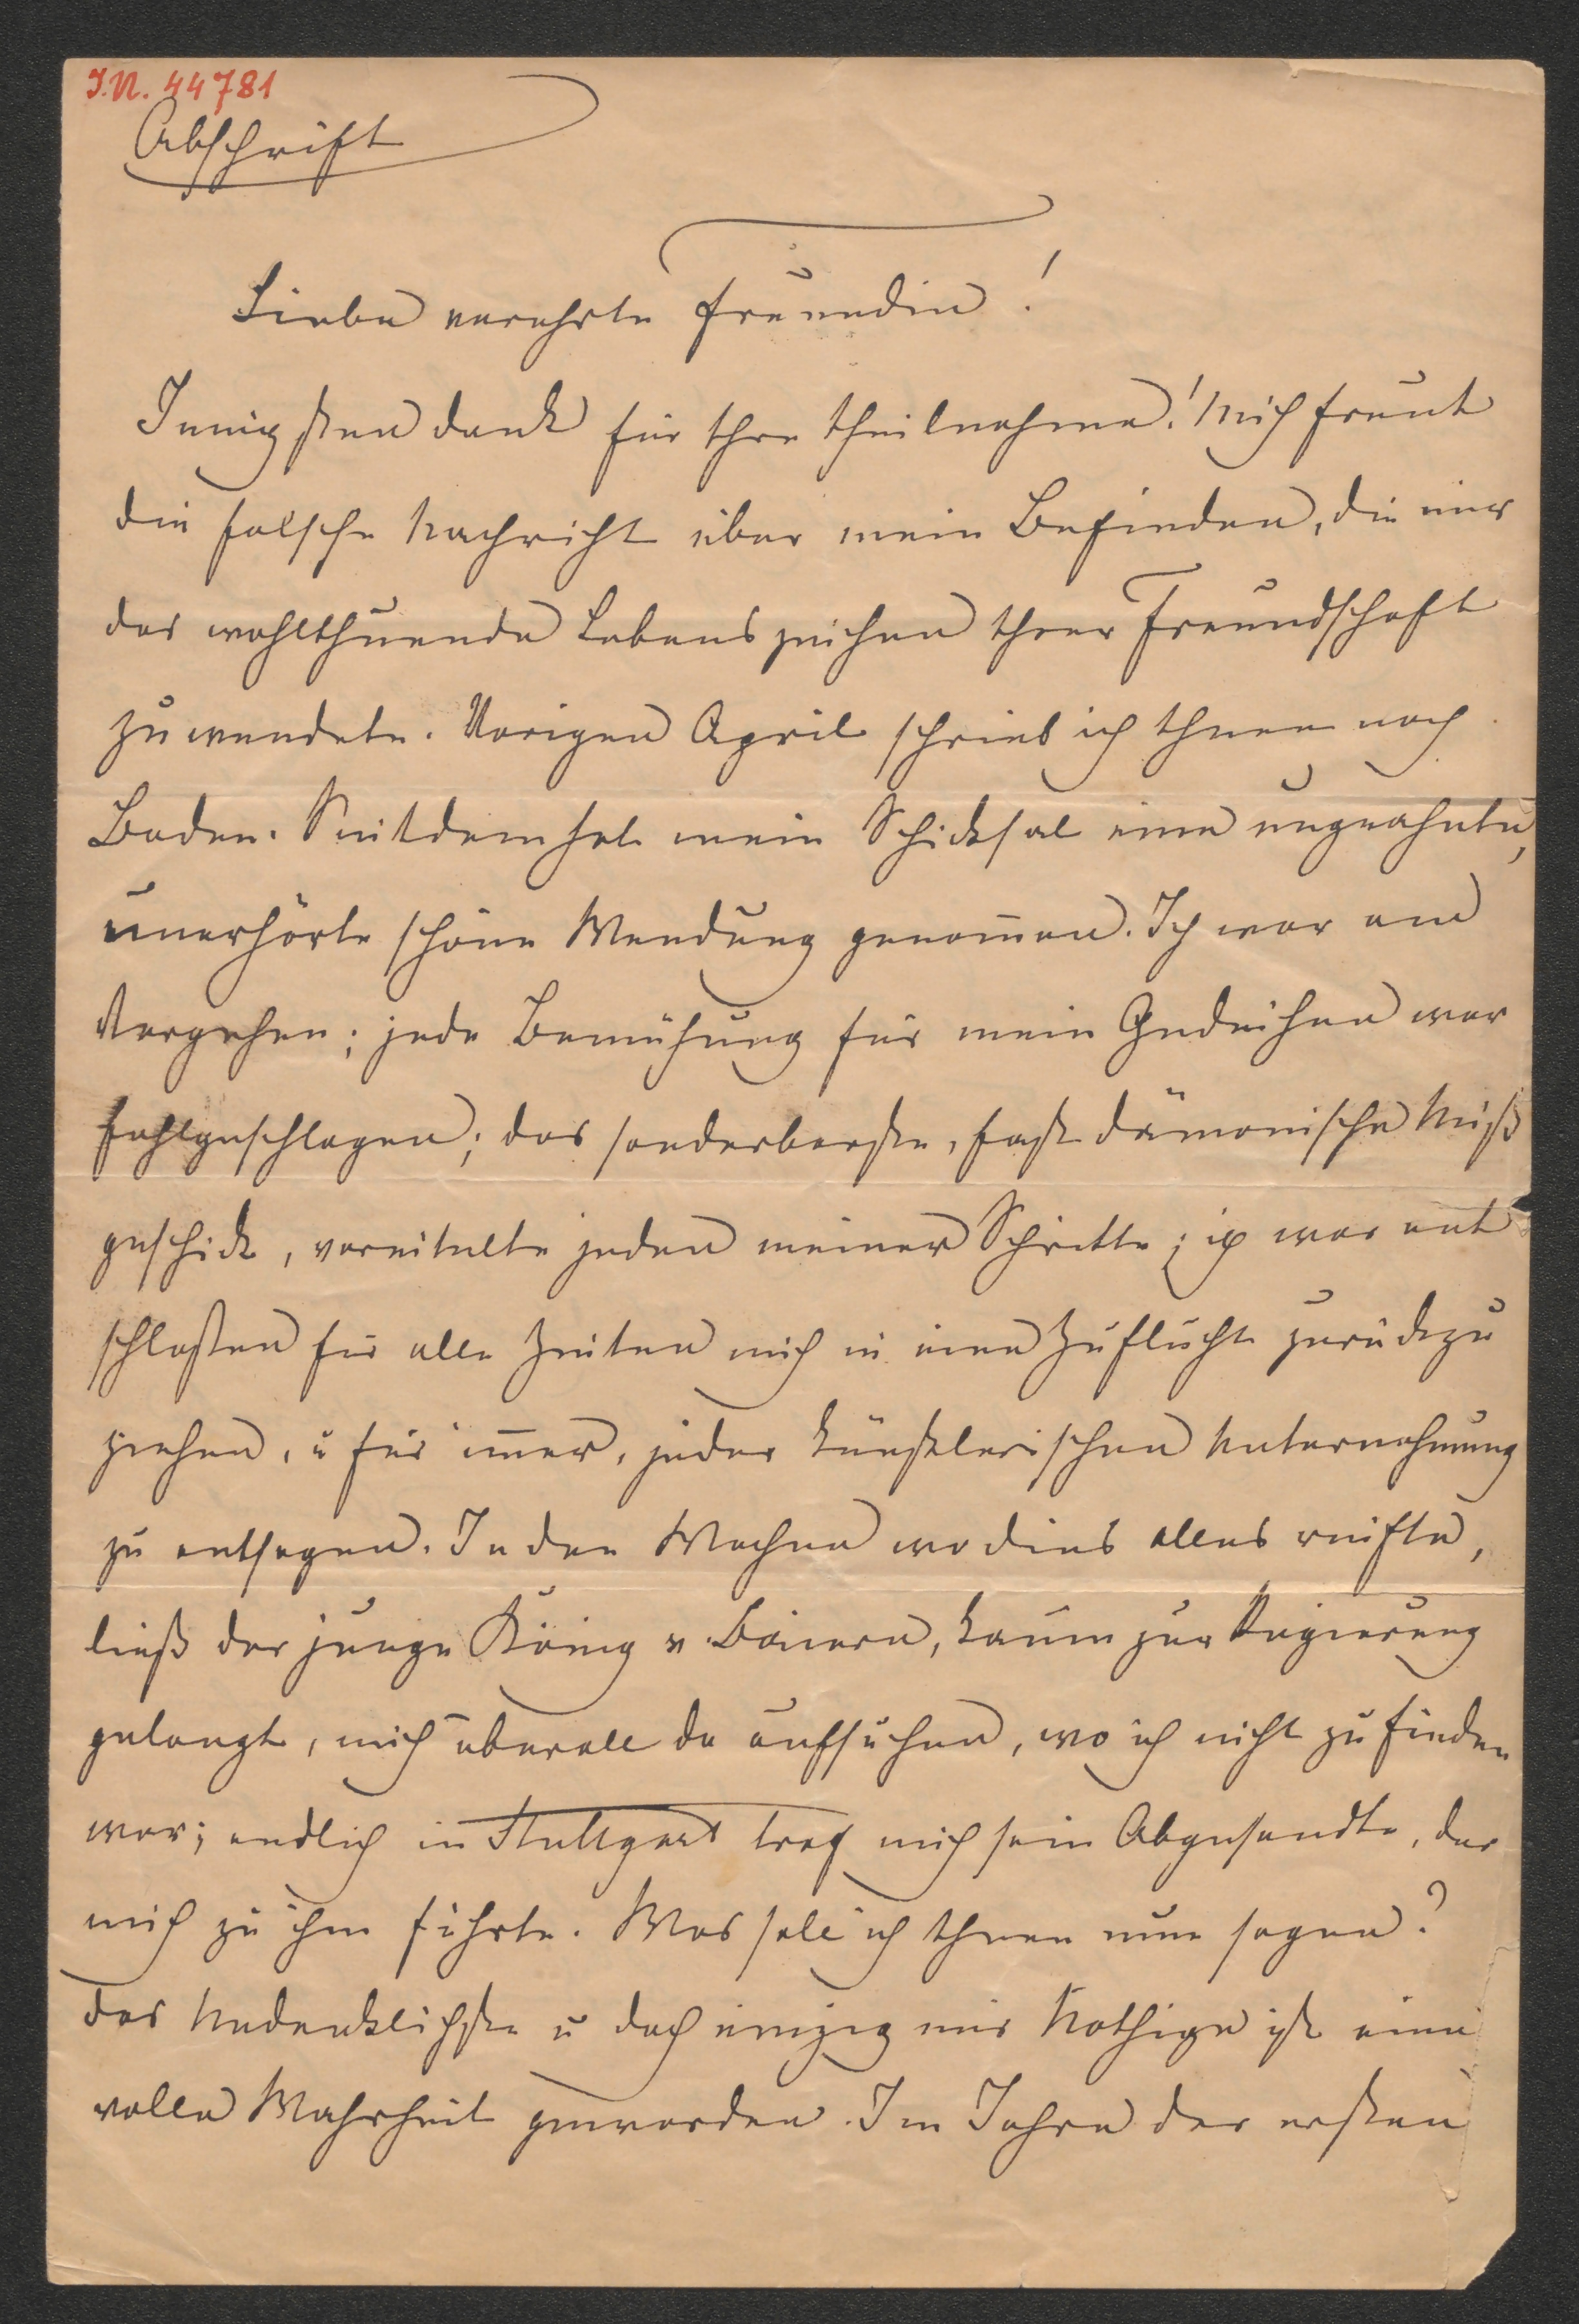 I.N. 44781
Abschrift
Liebe verehrte Freundin!
Innigsten Dank für Ihre Theilnahme! Mich freut
die falsche Nachricht über mein Befinden, die mir
das wohlthuende Lebenszeichen Ihrer Freundschaft
zuwendete. Vorigen April schrieb ich Ihnen nach
Baden. Seitdem hat mein Schicksal eine ungeahnte,
unerhörte schöne Wendung genom̅en. Ich war am
Vergehen; jede Bemühung für mein Gedeihen war
fehlgeschlagen; das sonderbarste, fast dämonische Miß
geschick, vereitelte jeden meiner Schritte; ich war ent
schloßen für alle Zeiten mich in eine Zuflucht zurückzu
ziehen, u für im̅er, jeder künstlerischen Unternehmung
zu entsagen. In den Wochen wo dies alles reifte,
ließ der junge König v. Baiern, kaum zur Regierung
gelangt, mich überall da aufsuchen, wo ich nicht zu finden
war; endlich in Stuttgart traf mich sein Abgesandte, der
mich zu ihm führte. Was soll ich Ihnen nun sagen?
Das Undenklichste u doch einzig mir Nöthige ist eine
volle Wahrheit geworden. Im Jahre der ersten